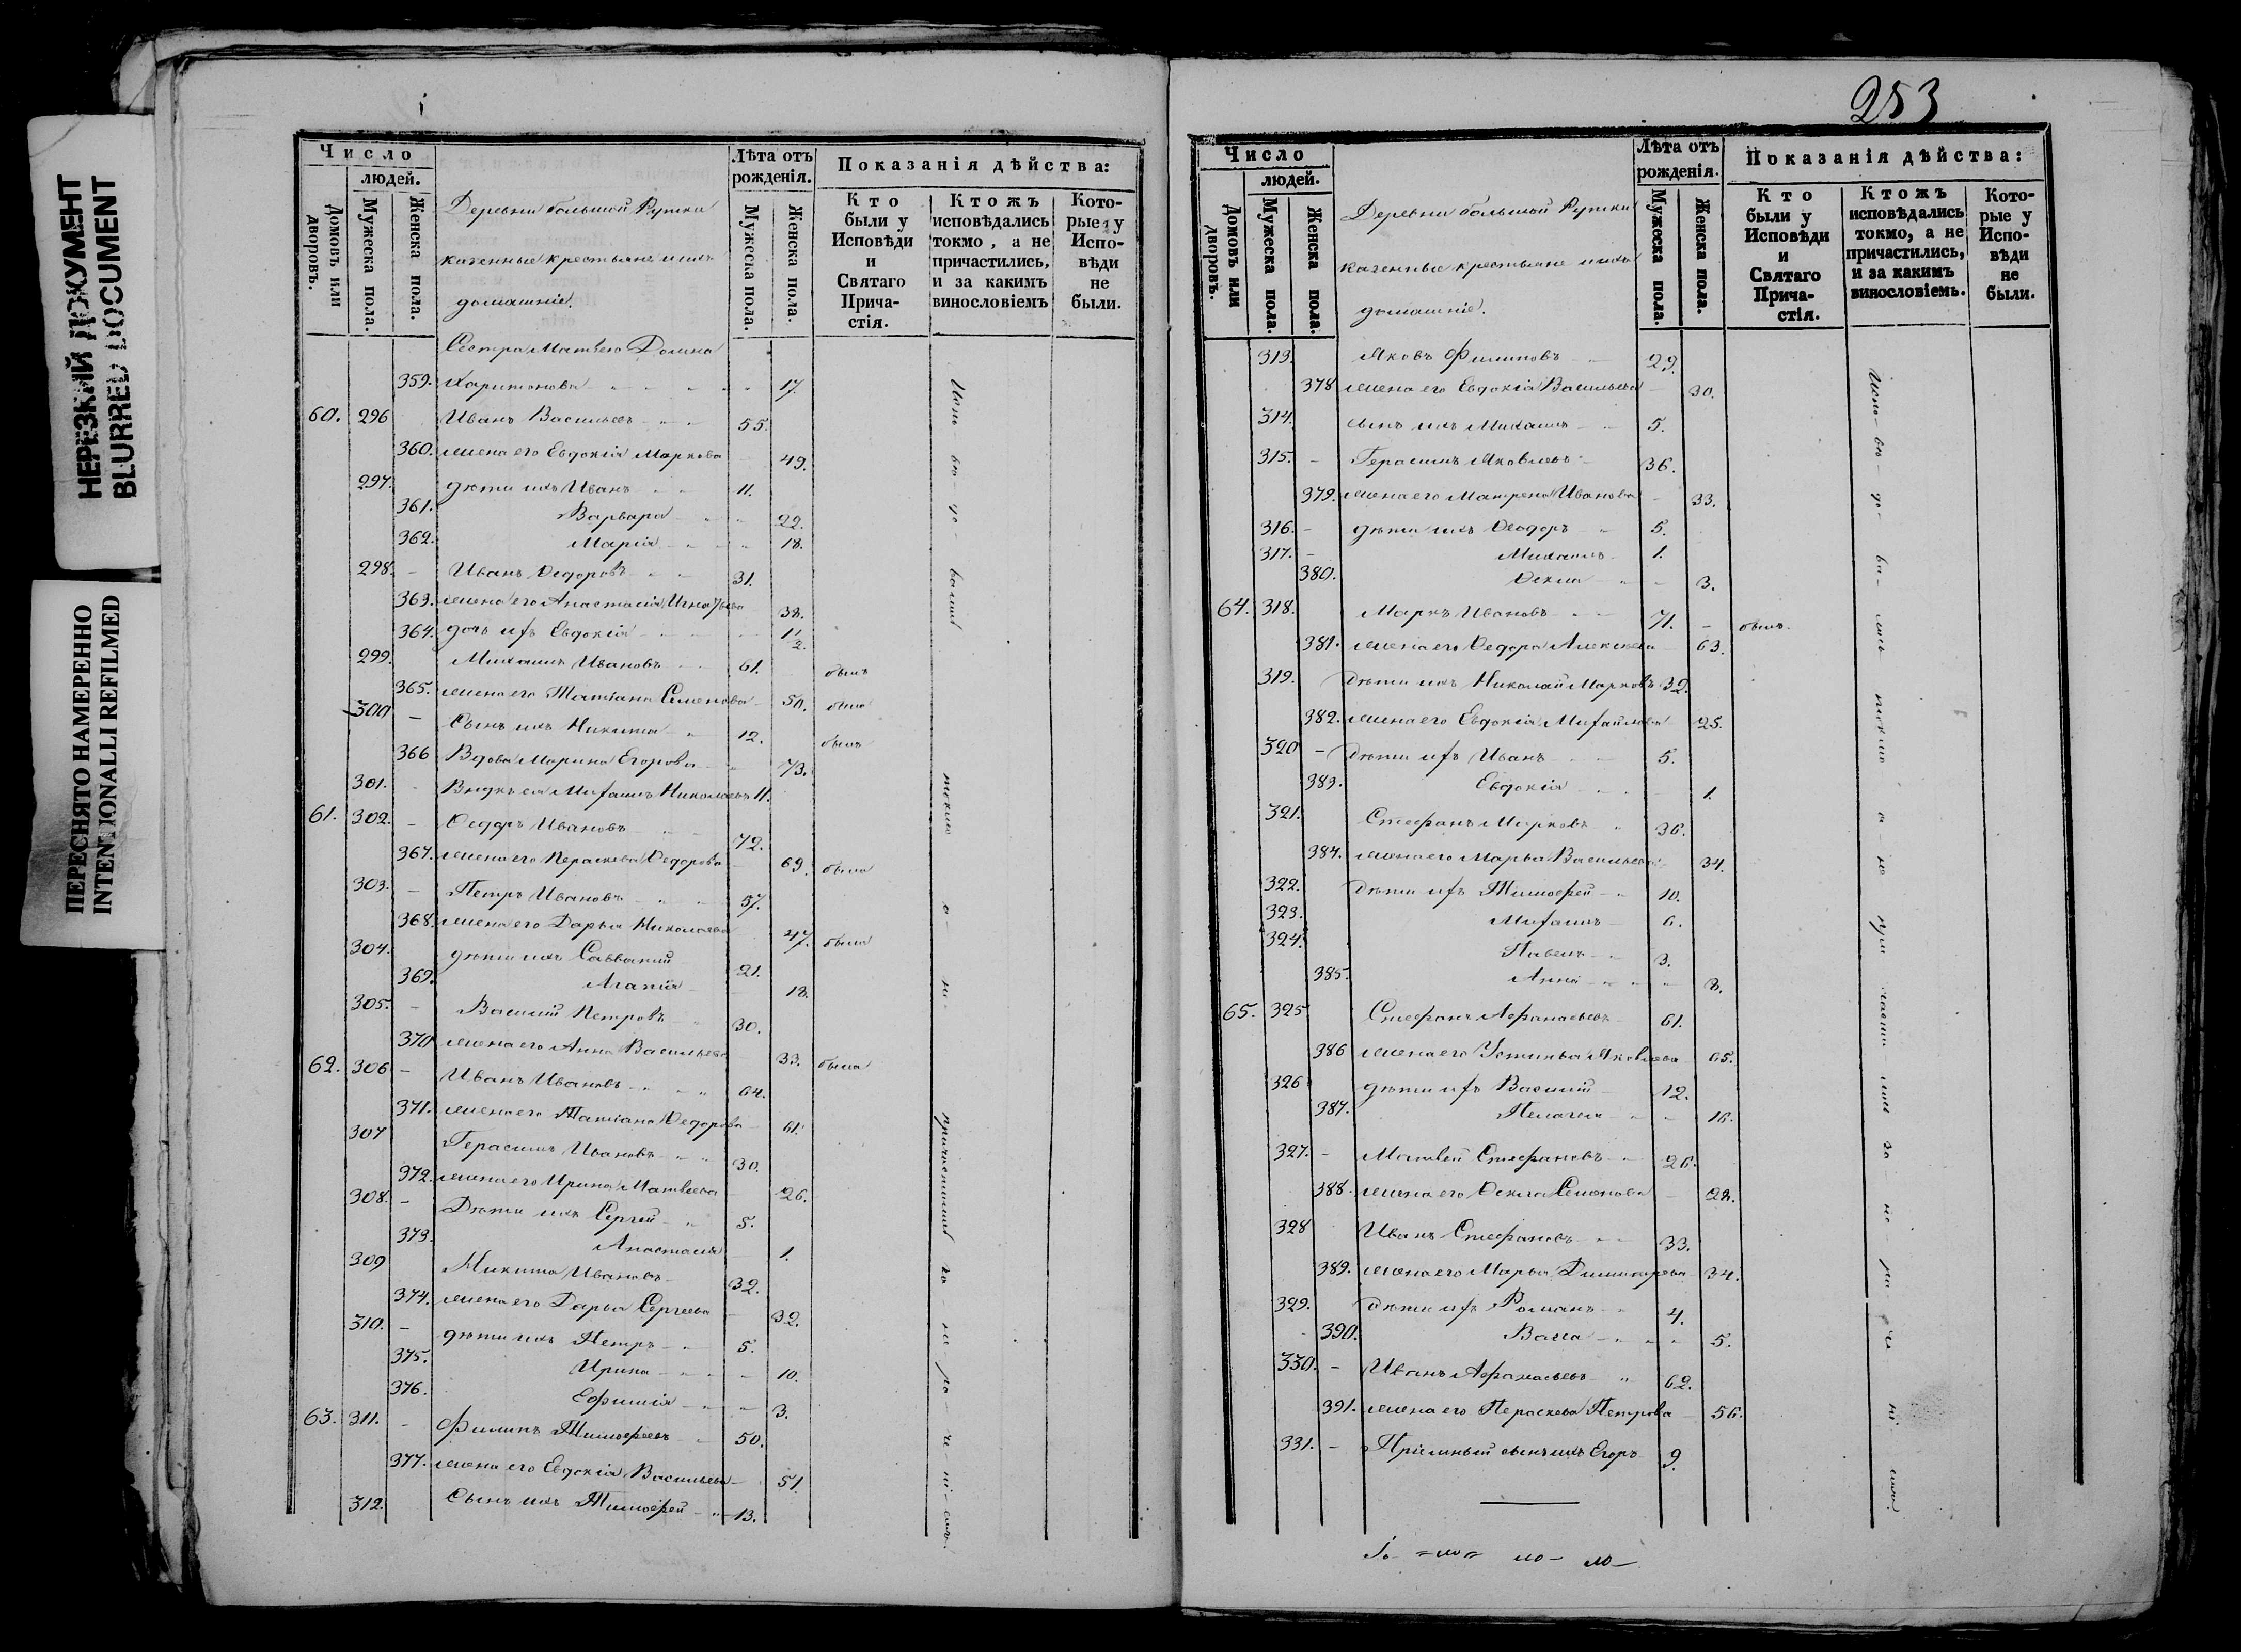 НЕРЕЗКИЙ ДОКУМЕНТ
BLURRED DOCUMENT
ПЕРЕСНЯТО НАМЕРЕННО
INTENTIONALLI REFILMED
Число
людей.
Домовъ или дворовъ.
Мужеска пола.
Женска пола.
Деревни большой Рутки
казенные крестьяне и ихъ
домашніе.
Лѣта отъ рожденія.
Мужеска пола.
Женска пола.
Показанія дѣйства:
Кто были у Исповѣди и Святаго Прича-стія.
Ктожъ исповѣдались токмо, а не причастились, и за какимъ винословіемъ
Кото-рые у Испо-вѣди не были.
Сестра Матвея Домна
359. Харитонова 17.
60. 296 Иванъ Васильевъ 55.
360. жена его Евдокія Маркова 49.
297. дѣти ихъ Иванъ 11.
361. Варвара 22.
362. Марія 18.
298. Иванъ Ѳедоровъ 31.
363. жена его Анастасія Игнатьева 38.
364. дочь ихъ Евдокія 1/2.
299. Михаилъ Ивановъ 61. былъ
365. жена его Татіана Семенова 50. была
300 Сынъ ихъ Никита 12. былъ
366 Вдова Марина Егорова 73.
301. Внукъ ея Михаилъ Николаевъ 11.
61. 302. Ѳедоръ Ивановъ 72.
367. жена его Параскева Ѳедорова 69. была
303. Петръ Ивановъ 57.
368. жена его Дарья Николаева 47. была
304. дѣти ихъ Савватий 21.
369. Агапія 18.
305. Василій Петровъ 30.
370 жена его Анна Васильева 33. была
62. 306 Иванъ Ивановъ 64.
371. жена его Татіана Ѳедорова 61.
307 Герасимъ Ивановъ 30.
372. жена его Ирина Матвеева 26.
308. Дѣти ихъ Сергей 5.
373. Анастасія 1.
309 Никита Ивановъ 32.
374. жена его Дарья Сергеева 32.
310. дѣти ихъ Петръ 5.
375. Ирина 10.
376. Ефимія 3.
63. 311. Филипъ Тимофеевъ 50.
377. жена его Евдокія Васильева 51.
312. Сынъ ихъ Тимофей 13.
253
Число
людей.
Домовъ или дворовъ.
Мужеска пола.
Женска пола.
Деревни большой Рутки
казенные крестьяне и ихъ
домашніе.
Лѣта отъ рожденія.
Мужеска пола.
Женска пола.
Показанія дѣйства:
Кто были у Исповѣди и Святаго Прича-стія.
Ктожъ исповѣдались токмо, а не причастились, и за какимъ винословіемъ.
Кото-рые у Испо-вѣди не были.
313. Яковъ Филиповъ 29.
378 жена его Евдокія Васильева 30.
314. сынъ ихъ Михаилъ 5.
315. Герасимъ Яковлевъ 36.
379. жена его Матрена Иванова 33.
316. дѣти ихъ Ѳеодоръ 5.
317. Михаилъ 1.
380. Ѳекла 3.
64. 318. Маркъ Ивановъ 71. былъ.
381. жена его Ѳедора Алексѣева 63.
319. Дѣти ихъ Николай Марковъ 32.
382. жена его Евдокія Михайлова 25.
320 Дѣти ихъ Иванъ 5.
383. Евдокія 1.
321. Стефанъ Марковъ 36.
384. жена его Марья Васильева 34.
322. Дѣти ихъ Тимофей 10.
323. Михаилъ 6.
324. Павелъ 3.
385. Анна 8.
65. 325 Стефанъ Афанасьевъ 61.
386 жена его Устинья Яковлева 65.
326 дѣти ихъ Василій 12.
387. Пелагея 16.
327. Матвей Стефановъ 26.
388. жена его Ѳекла Семенова 28.
328 Иванъ Стефановъ 33.
389. жена его Марья Димитріева 34.
329. дѣти ихъ Романъ 4.
390. Васса 5.
330. Иванъ Афанасьевъ 62.
391. жена его Параскева Петрова 56.
331. Пріемный сынъ ихъ Егоръ 9.